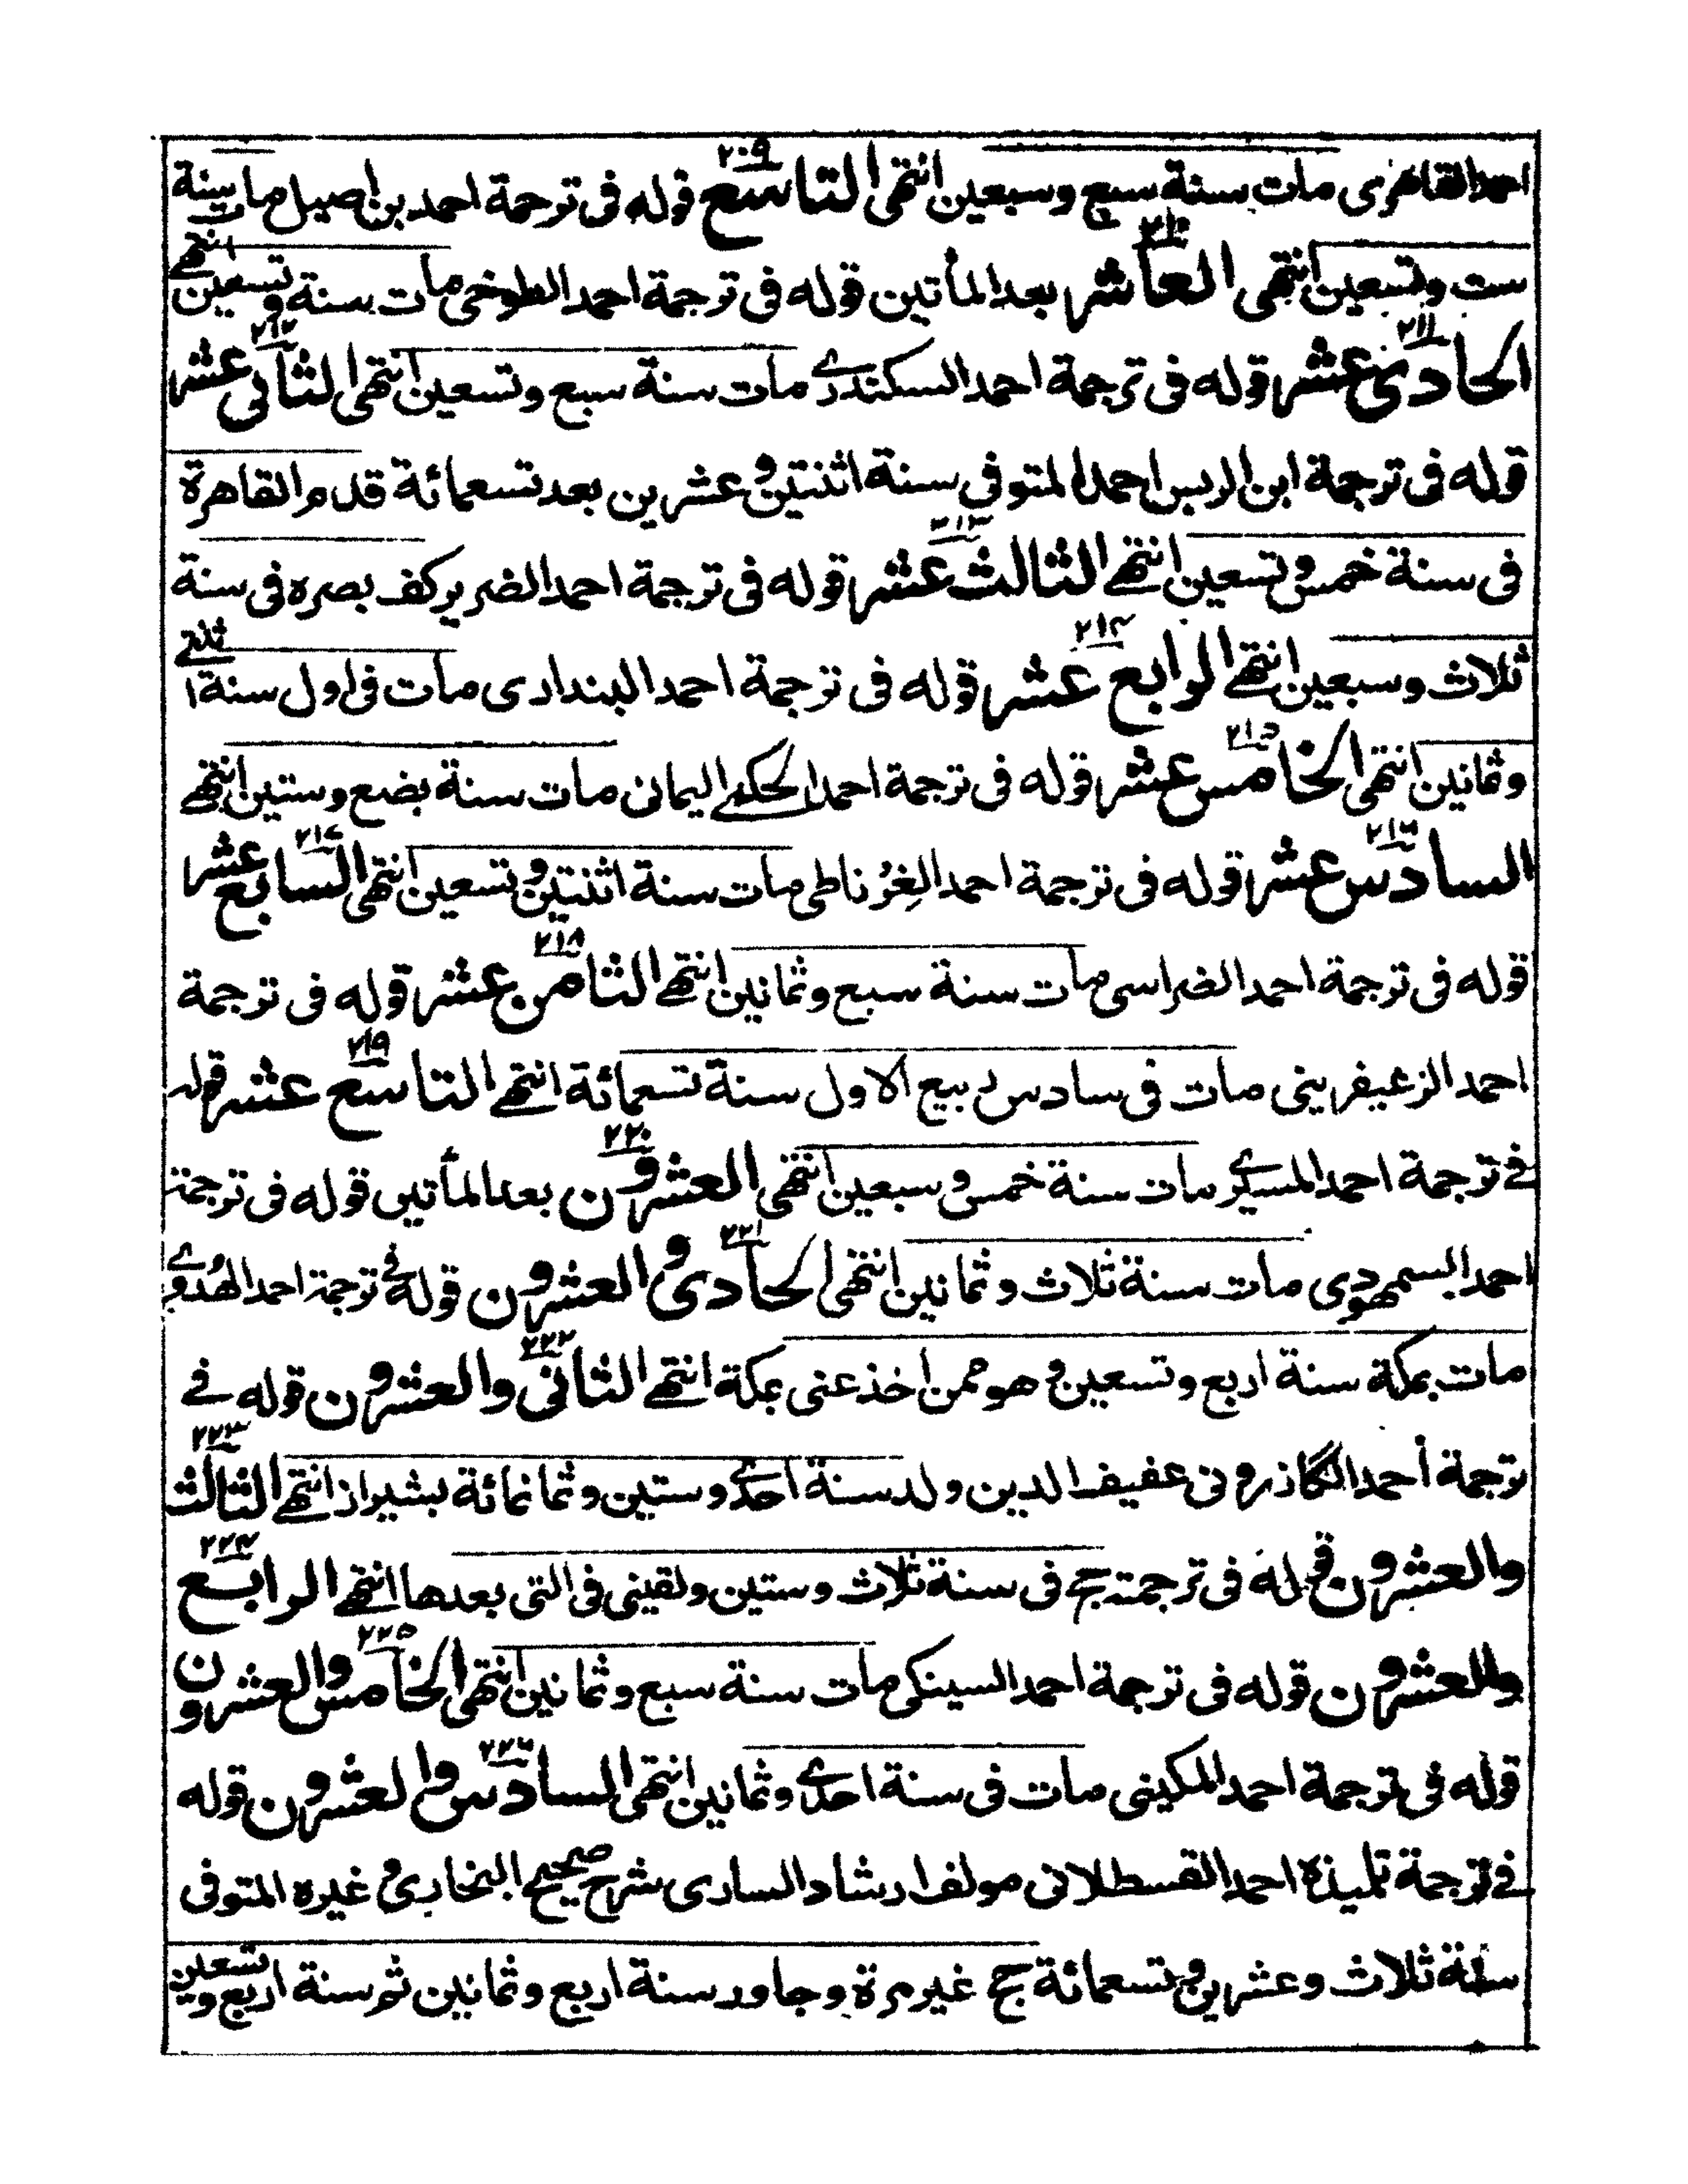 احمد القاهري مات سنة سبع وسبعين انتهى التاسع ٢٠٩ قوله فى ترجمة احمد بن اصيل مات سنة
ست وتسعين انتهى العاشر ٢١٠ بعد المأتين قوله فى ترجمة احمد الطوخى مات سنة وتسعين انتهے
الحادى عشر ٢١١ قوله فى ترجمة احمد السكندرے مات سنة سبع وتسعين انتهى الثانى عشر ٢١٢
قوله فى ترجمة ابن الريس احمد المتوفى سنة اثنتين وعشرين بعد تسعمائة قدم القاهرة
فى سنة خمس وتسعين انتهے الثالث عشر ٢١٣ قوله فى ترجمة احمد الضرير كف بصره فى سنة
ثلاث وسبعين انتهے الرابع عشر ٢١٤ قوله فى ترجمة احمد البندارى مات فى اول سنة
وثمانين انتهى الخامس عشر ٢١٥ قوله فى ترجمة احمد الحكمے اليمانى مات سنة بضع وستين انتهے
السادس عشر ٢١٦ قوله فى ترجمة احمد الغرناطى مات سنة اثنتين وتسعين انتهى السابع عشر ٢١٧
قوله فى ترجمة احمد الضراسى مات سنة سبع وثمانين انتهے الثامن عشر ٢١٨ قوله فى ترجمة
احمد الزعيفرينى مات فى سادس ربيع الاول سنة تسعمائة انتهے التاسع عشر ٢١٩ قوله
فے ترجمة احمد المسيرے مات سنة خمس وسبعين انتهى العشرون ٢٢٠ بعد المأتين قوله فى ترجمة
احمد السمهودى مات سنة ثلاث وثمانين انتهى الحادى والعشرون ٢٢١ قوله فے ترجمة احمد
مات بمكة سنة اربع وتسعين وهو ممن اخذ عنى بمكة انتهے الثانى والعشرون ٢٢٢ قوله فے
ترجمة أحمد الگازرونى عفيف الدين ولد سنة احدے وستين وثمانمائة بشيراز انتهے الثالث ٢٢٣
والعشرون قوله فى ترجمته حج فى سنة ثلاث وستين ولقينى فى التى بعدها انتهے الرابع ٢٢٤
والعشرون قوله فى ترجمة احمد السينكى مات سنة سبع وثمانين انتهى الخامس والعشرون ٢٢٥
قوله فى ترجمة احمد المكينى مات فى سنة احدے وثمانين انتهى السادس والعشرون ٢٢٦ قوله
فے ترجمة تلميذه احمد القسطلانى مولف ارشاد السارى شرح صحيح البخارى وغيره المتوفى
سنة ثلاث وعشرين وتسعمائة حج غير مرة وجاور سنة اربع وثمانين ثم سنة اربع وتسعين